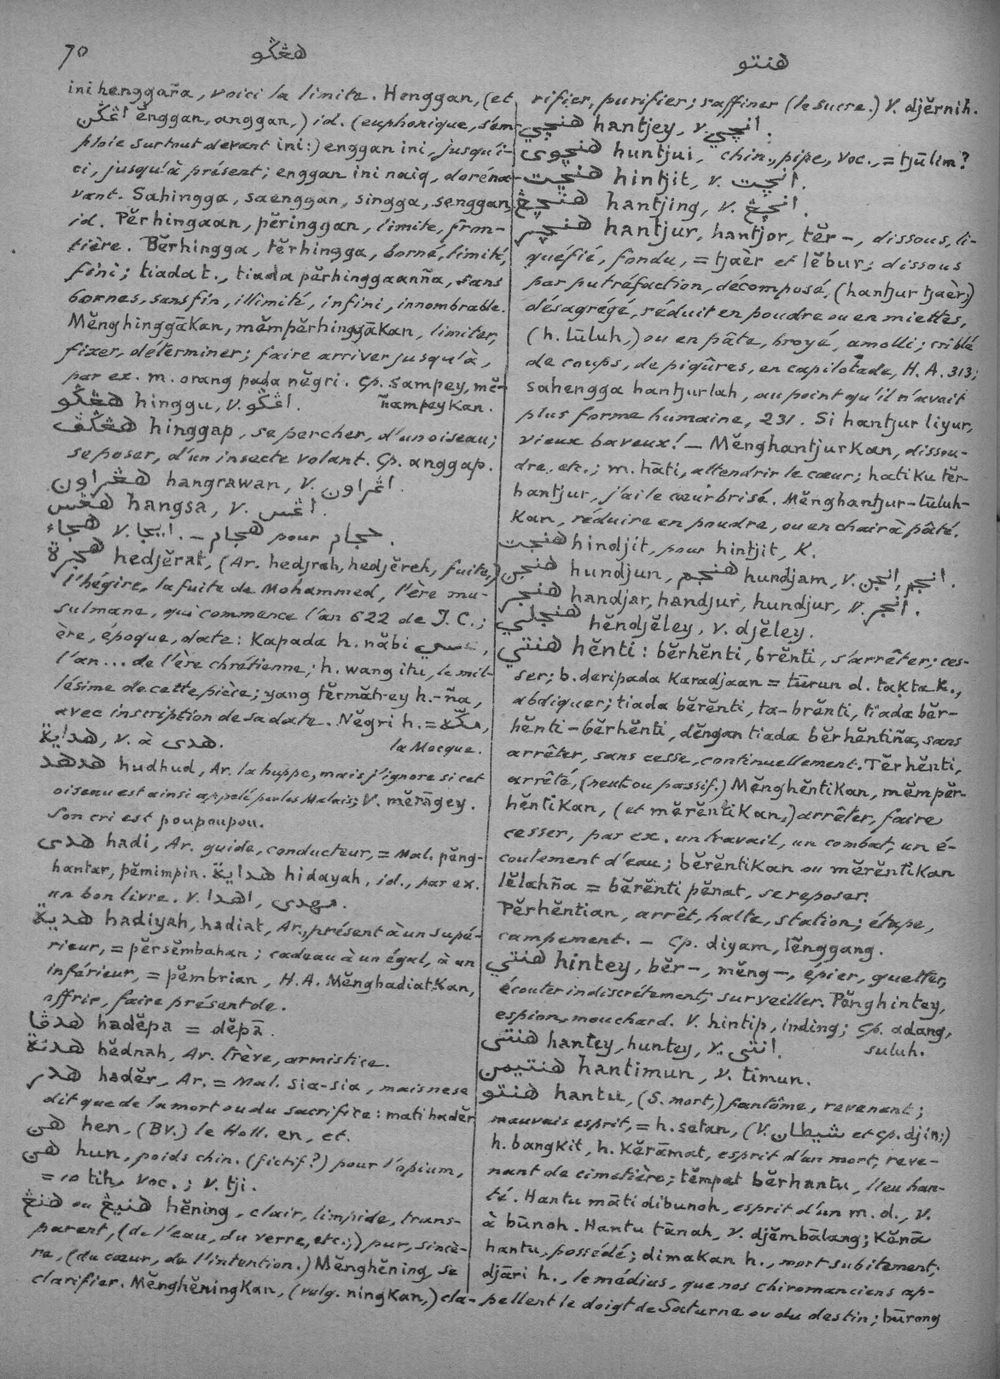 70
هڠݢو
هنتو
ini henggaña, voici la limite. Henggan, (et
اڠݢن ĕnggan, anggan,) id. (euphonique, s'em-
ploie surtout devant ini:) enggan ini, jusqu'i-
ci, jusqu'à présent; enggan ini naiq, doréna-
vant. Sahingga, saenggan, singga, senggan,
id. Pĕrhingaan, pĕringgan, limite, fron-
tière. Bĕrhingga, tĕrhingga, borné, limité,
fini; tiada t., tiada pĕrhinggaanña, sans
bornes, sans fin, illimité, infini, innombrable.
Mĕnghinggākan, mĕmpĕrhinggākan, limiter,
fixer, déterminer; faire arriver jusqu'à,
par ex. m. orang pada nĕgri. Cp. sampey, mĕ-
ñampeykan.
هڠݢو hinggu, v. اڠݢو.
هڠݢڤ hinggap, se percher, d'un oiseau;
se poser, d'un insecte volant. Cp. anggap.
هڠراون hangrawan, v. اڠراون.
هڠس hangsa, v. اڠس.
هجاء v. ايجا. — هجام pour حجام.
هجرة hedjĕrat, (Ar. hedjrah, hedjĕreh, fuite,)
l'hégire, la fuite de Mohammed, l'ère mu-
sulmane, qui commence l'an 622 de J.C.;
ère, époque, date: Kapada h. năbi عيسي,
l'an... de l'ère chrétienne; h. wang itu, le mil-
lésime de cette pièce; yang tĕrmătrey h.-ña,
avec inscription de sa date. Nĕgri h. = مكّة,
la Mecque.
هداية, v. à هدى.
هدهد hudhud, Ar. la huppe, mais j'ignore si cet
oiseau est ainsi appelé par les Malais; V. mĕrāgey.
Son cri est poupoupou.
هدى hadi, Ar. guide, conducteur, = Mal. pĕng-
hantar, pĕmimpin. هداية hidayah, id., par ex.
un bon livre. V. اهدا, مهدى.
هدية hadiyah, hadiat, Ar., présent à un supé-
rieur, = pĕrsĕmbahan; cadeau à un égal, à un
inférieur, = pĕmbrian, H.A. Mĕnghadiatkan,
offrir, faire présent de.
هدڤا hadĕpa = dĕpā.
هدنة hĕdnah, Ar. trève, armistice.
هدر hadĕr, Ar. = Mal. sia-sia, mais ne se
dit que de la mort ou du sacrifice: mati hadĕr
هن hen, (BV.) le Holl. en, et.
هن hun, poids chin. (fictif?) pour l'opium,
= 10 tih, voc.; v. tji.
هنڠ ou هنيڠ hĕning, clair, limpide, trans-
parent, (de l'eau, du verre, etc.;) pur, sincè-
re, (du cœur, de l'intention.) Mĕnghĕning, se
clarifier. Mĕnghĕningkan, (vulg. ningkan,) cla-
rifier, purifier; raffiner (le sucre.) V. djĕrnih.
هنچي hantjey, v. انچي.
هنچوى huntjui, chin., pipe, voc., = tjūlim?
هنچت hintjit, v. انچت.
هنچڠ hantjing, v. انچڠ.
هنچر hantjur, hantjor, tĕr-, dissous, li-
quéfié, fondu, = tjaèr et lĕbur; dissous
par putréfaction, décomposé, (hantjur tjaèr;)
désagrégé, réduit en poudre ou en miettes,
(h. lūluh,) ou en pâte, broyé, amolli; criblé
de coups, de piqûres, en capilotade, H.A. 313;
sahengga hantjurlah, au point qu'il n'avait
plus forme humaine, 231. Si hantjur liyur,
vieux baveux! — Mĕnghantjurkan, dissou-
dre, etc.; m. hāti, attendrir le cœur; hatiku tĕr-
hantjur, j'ai le cœur brisé. Mĕnghantjur-lūluh-
kan, réduire en poudre, ou en chair à pâté.
هنجت hindjit, pour hintjit, K.
هنجن hundjun, هنجم hundjam, v. انجن, انجم.
هنجر handjar, handjur, hundjur, v. انجر.
هنجلي hĕndjĕley, v. djĕley.
هنتي hĕnti: bĕrhĕnti, brĕnti, s'arrêter; ces-
ser; b. deripada karadjaan = tūrun d. takta k.,
abdiquer; tiada bĕrĕnti, ta-brĕnti, tiada bĕr-
hĕnti-bĕrhĕnti, dĕngan tiada bĕrhĕntiña, sans
arrêter, sans cesse, continuellement. Tĕrhĕnti,
arrêté, (neut ou passif.) Mĕnghĕntikan, mĕmpĕr-
hĕntikan, (et mĕrĕntikan,) arrêter, faire
cesser, par ex. un travail, un combat, un é-
coulement d'eau; bĕrĕntikan ou mĕrĕntikan
lĕlahña = bĕrĕnti pĕnat, se reposer.
Pĕrhĕntian, arrêt, halte, station; étape,
campement. — Cp. diyam, lĕnggang.
هنتي hintey, bĕr-, mĕng-, épier, guetter,
écouter indiscrètement, surveiller. Pĕnghintey,
espion, mouchard. V. hintip, inding; Cp. adang,
suluh.
هنتى hantey, huntey, v. انتى.
هنتيمن hantimun, v. timun.
هنتو hantu, (S. mort,) fantôme, revenant;
mauvais esprit, = h. setan, (V. شيطان et cp. djin;)
h. bangkit, h. kĕrāmat, esprit d'un mort, reve-
nant de cimetière; tĕmpat bĕrhantu, lieu han-
té. Hantu māti dibunoh, esprit d'un m. d., v.
à būnoh. Hantu tānah, v. djĕmbālang; kĕnā
hantu, possédé; dimakan h., mort subitement;
djāri h., le médius, que nos chiromanciens ap-
pellent le doigt de Saturne ou du destin; būrong